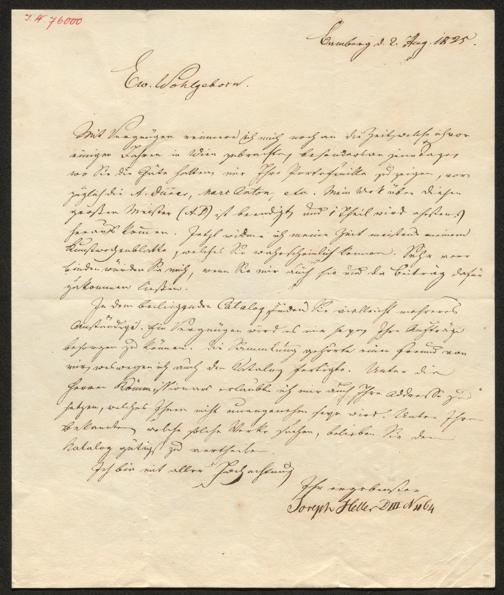 I. N. 76000
Bamberg d. 2. Aug. 1825.
Ew. Wohlgeborn.
Mit Vergnügen erinnere ich mich noch an die Zeit, welche ich vor
einigen Jahren in Wien zubrachte, besonders an jenen Tag,
wo Sie die Güte hatten mir Ihre Portefeuille zu zeigen, vor
züglich die A. Dürer, Marc Anton, etc. Mein Werk über diesen
großen Meister (A. D) ist beendigt, und 1 Theil wird
heraus kommen. Jetzt widme ich meine Zeit meistens meinem
Kunst blatte, welches Sie wahrscheinlich kennen. Sehr ver
binden würden Sie mich, wenn Sie mir auch hie und da Beiträge dafür
zukommen ließen.
In dem beiliegenden Catalog finden Sie vielleicht mehreres
Anständige. Ein Vergnügen wird es mir seyn, Ihre Aufträge
besorgen zu können. Die Sammlung gehörte einem Freund von
mir, weswegen ich auch den Katalog fertigte. Unter die
Herren Kommissionair erlaubte ich mir auch Ihre Addresse zu
setzen, welches Ihnen nicht unangenehm seyn wird. Unter Ihre
Bekannten, welche solche Werke suchen, belieben Sie den
Katalog gütigst zu vertheilen.
Ich bin mit aller Hochachtung
Ihr ergebenster
Joseph Heller D III N 1164